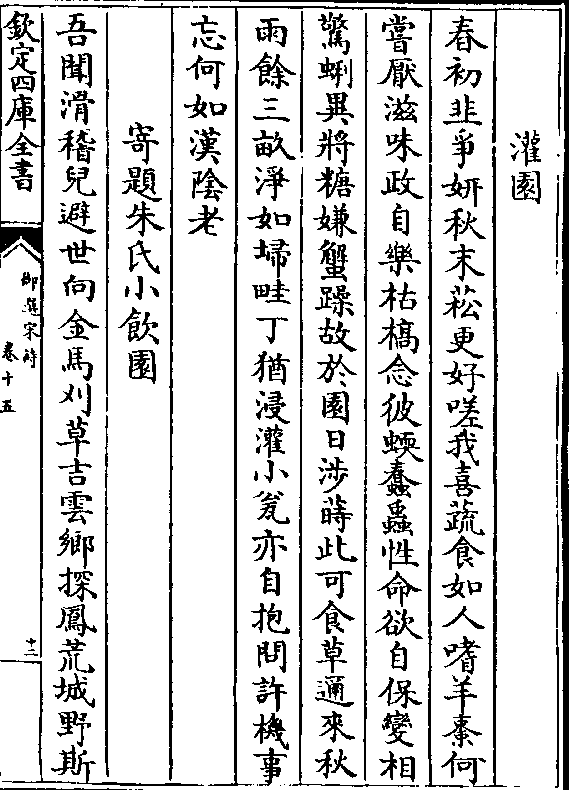 灌園
春初韭爭妍秋末菘更好嗟我喜蔬食如人嗜羊棗何
嘗厭滋味政自樂枯槁念彼蝡蠢蟲性命欲自保變相
驚蜊異將糖嫌蟹躁故於園日涉蒔此可食草邇來秋
雨餘三畝淨如埽畦丁猶浸灌小瓮亦自抱問許機事
忘何如漢陰老
寄題朱氏小飲園
吾聞滑稽兒避世向金馬刈草吉雲鄉探鳳荒城野斯
欽定四庫全書
御選宋詩
卷十五
十二